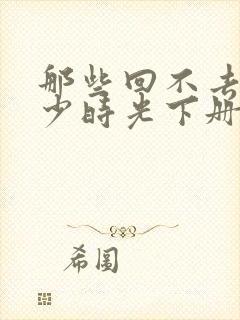 那些回不去
少时光下册
希图